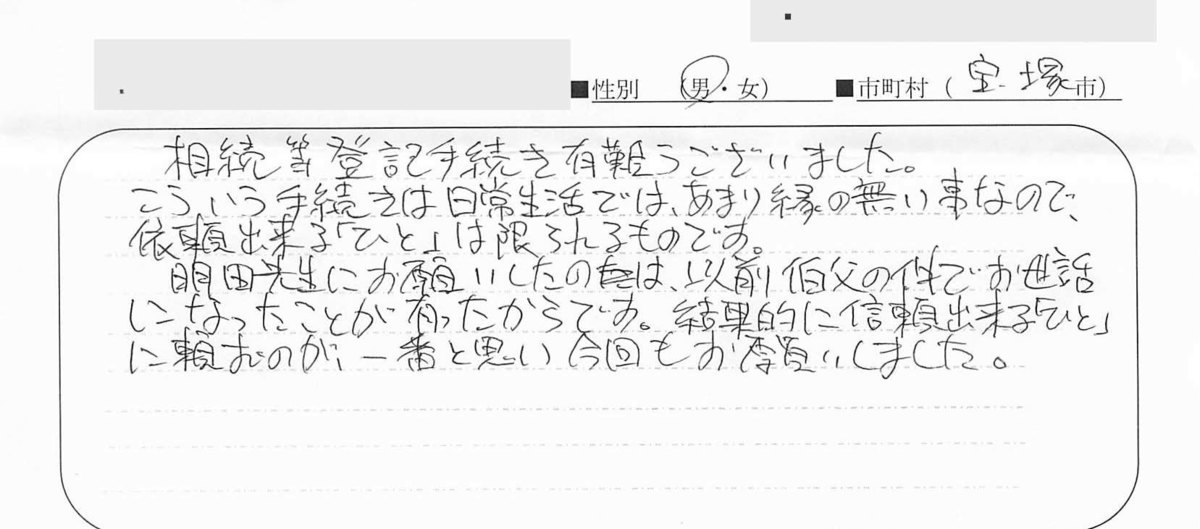 ■性別 (男・女) ■市町村 (宝塚市)
相続等登記手続き有難うございました。
こういう手続きは日常生活では、あまり縁の無い事なので、
依頼出来る「ひと」は限られるものです。
明田先生にお願いしたのは、以前伯父の件でお世話
になったことが有ったからです。結果的に信頼出来る「ひと」
に頼むのが、一番と思い今回もお願いしました。